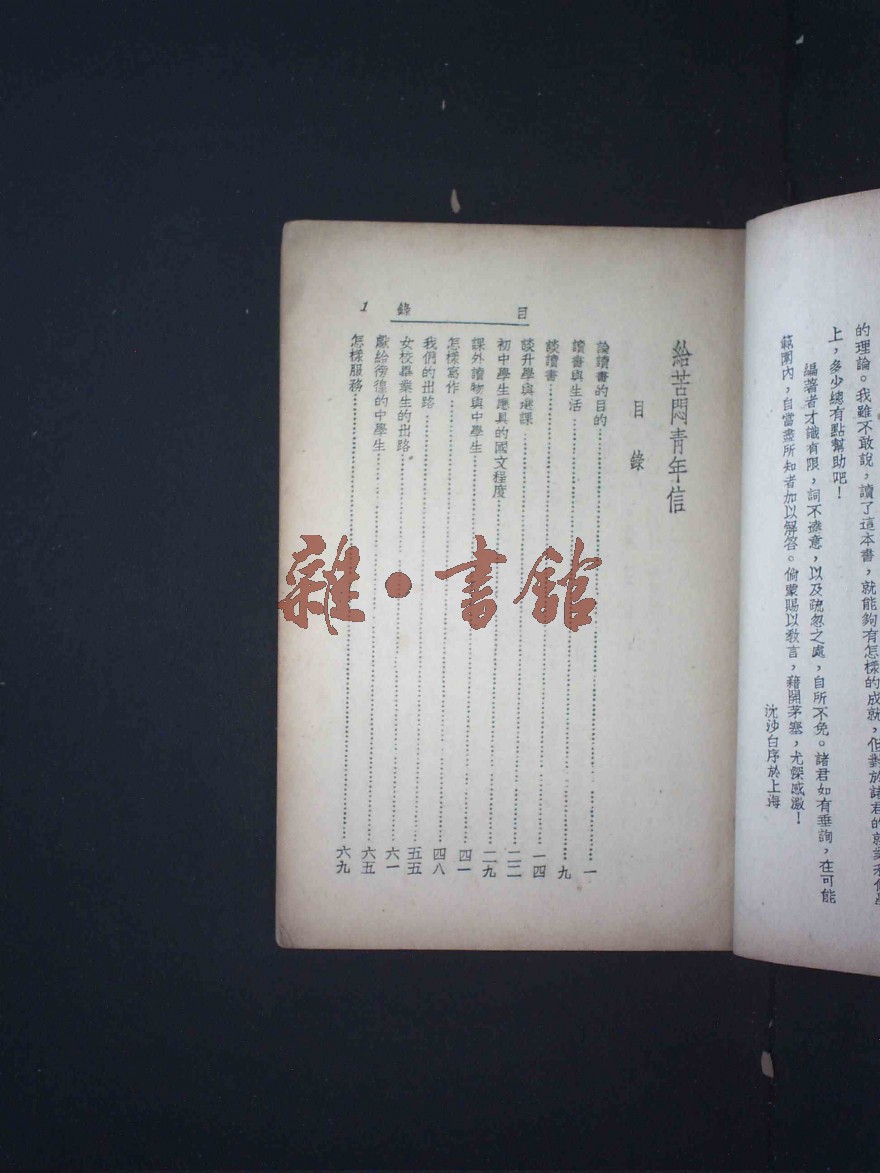 的理論。我雖不敢說，讀了這本書，就能夠有怎樣的成就，但對於諸君的就業和修學
上，多少總有點幫助吧！
編著者才識有限，詞不達意，以及疏忽之處，自所不免。諸君如有垂詢，在可能
範圍內，自當盡所知者加以解答。倘蒙賜以敎言，藉開茅塞，尤深感激！
沈沙白序於上海
目錄 1
給苦悶青年信
目錄
論讀書的目的……一
讀書與生活……九
談讀書……一四
談升學與選課……二二
初中學生應具的國文程度……二九
課外讀物與中學生……四一
怎樣寫作……四八
我們的出路……五五
女校畢業生的出路……六一
獻給徬徨的中學生……六五
怎樣服務……六九
雜·書館